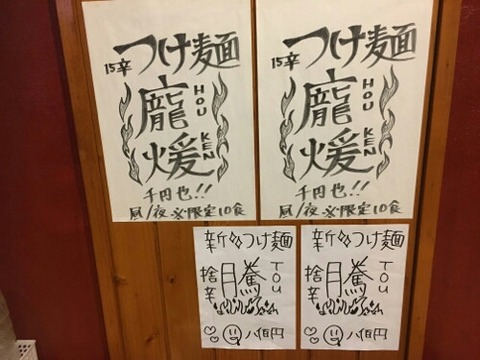 15辛つけ麺
龐煖
HOU
KEN
千円也!!
昼/夜 各限定10食
15辛つけ麺
龐煖
HOU
KEN
千円也!!
昼/夜 各限定10食
新つけ麺
捨辛
騰
TOU
八百円
新つけ麺
捨辛
騰
TOU
八百円